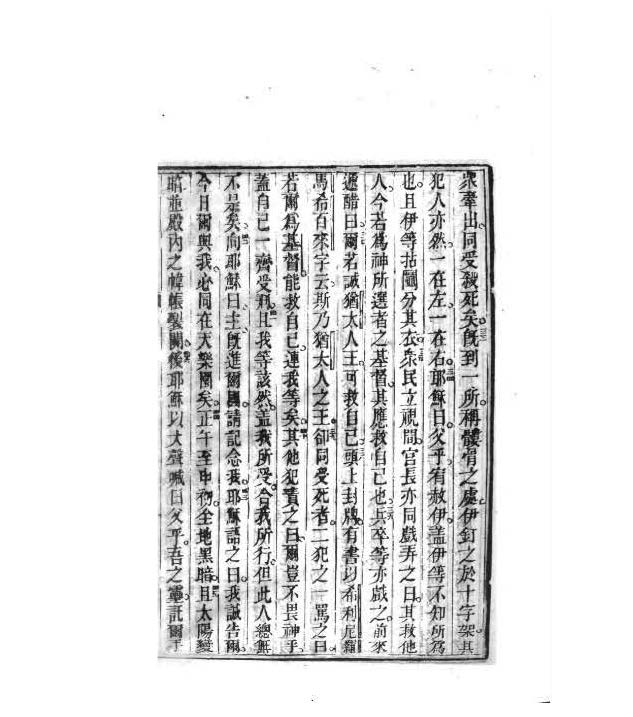 衆牽出同受殺死矣既到一所稱髏骨之處伊釘之於十字架其
犯人亦然一在左一在右耶穌曰父乎宥赦伊蓋伊等不知所為
也且伊等拈鬮分其衣衆民立視間官長亦同戲弄之曰其救他
人今若為神所選者之基督其應救自己也兵卒等亦戲之前來
遞醋曰爾若誠猶太人王可救自己頭上封牌有書以希利尼羅
馬希百來字云斯乃猶太人之王卻同受死者二犯之一罵之曰
若爾為基督能救自己連我等矣其他犯責之曰爾豈不畏神乎
蓋自己一齊受刑且我等該然蓋我所受合我所行但此人總無
不是矣向耶穌曰主既進爾國請記念我耶穌語之曰我誠告爾
今日爾與我必同在天樂園矣正午至申初全地黑暗且太陽變
暗並殿內之幃帳裂開後耶穌以大聲喊曰父乎吾之靈託爾手